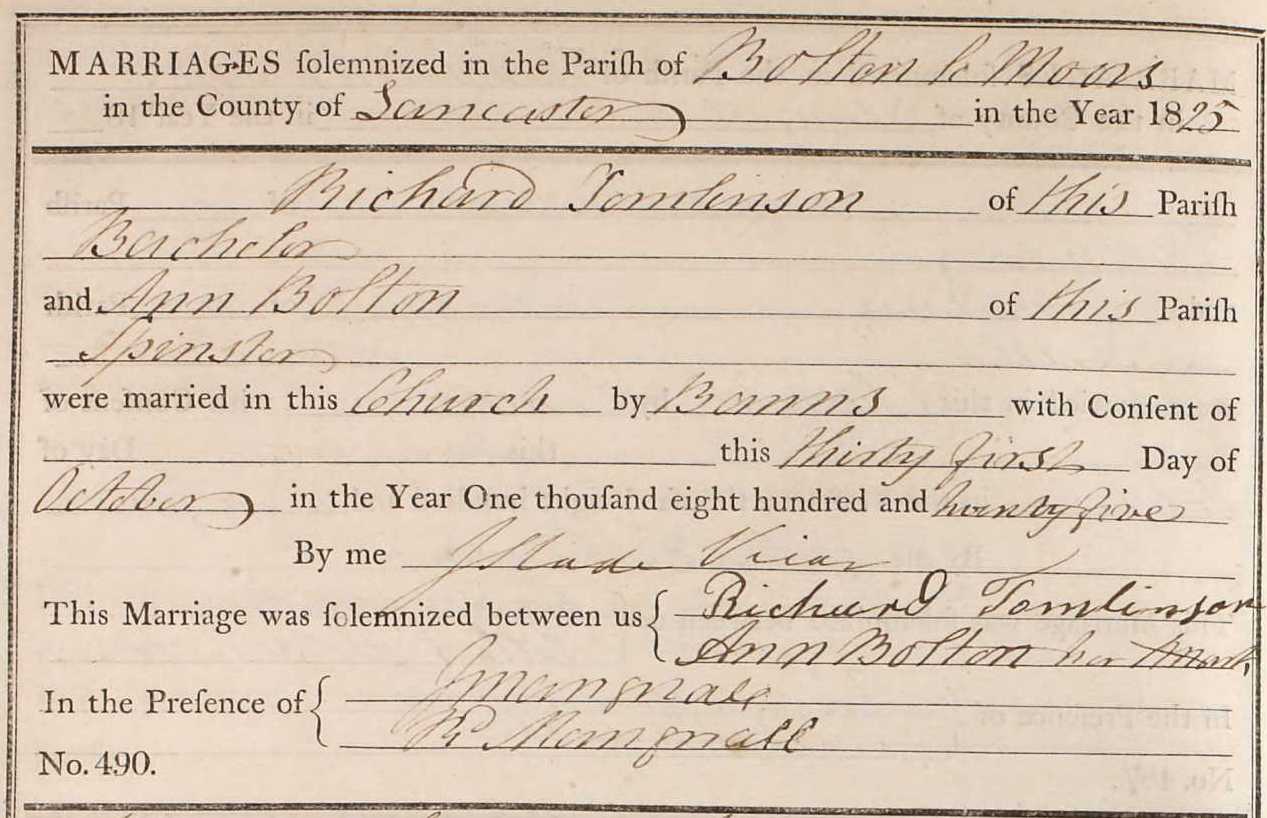 MARRIAGES ſolemnized in the Pariſh of Bolton le Moors
in the County of Lancaster in the Year 1825
Richard Tomlinson of this Pariſh
Bachelor
and Ann Bolton of this Pariſh
Spinster
were married in this Church by Banns with Conſent of
this thirty first Day of
October in the Year One thouſand eight hundred and twenty five
By me J Slade Vicar
This Marriage was ſolemnized between us Richard Tomlinson
Ann Bolton her X Mark
In the Preſence of J Mangnall
R Mangnall
No. 490.